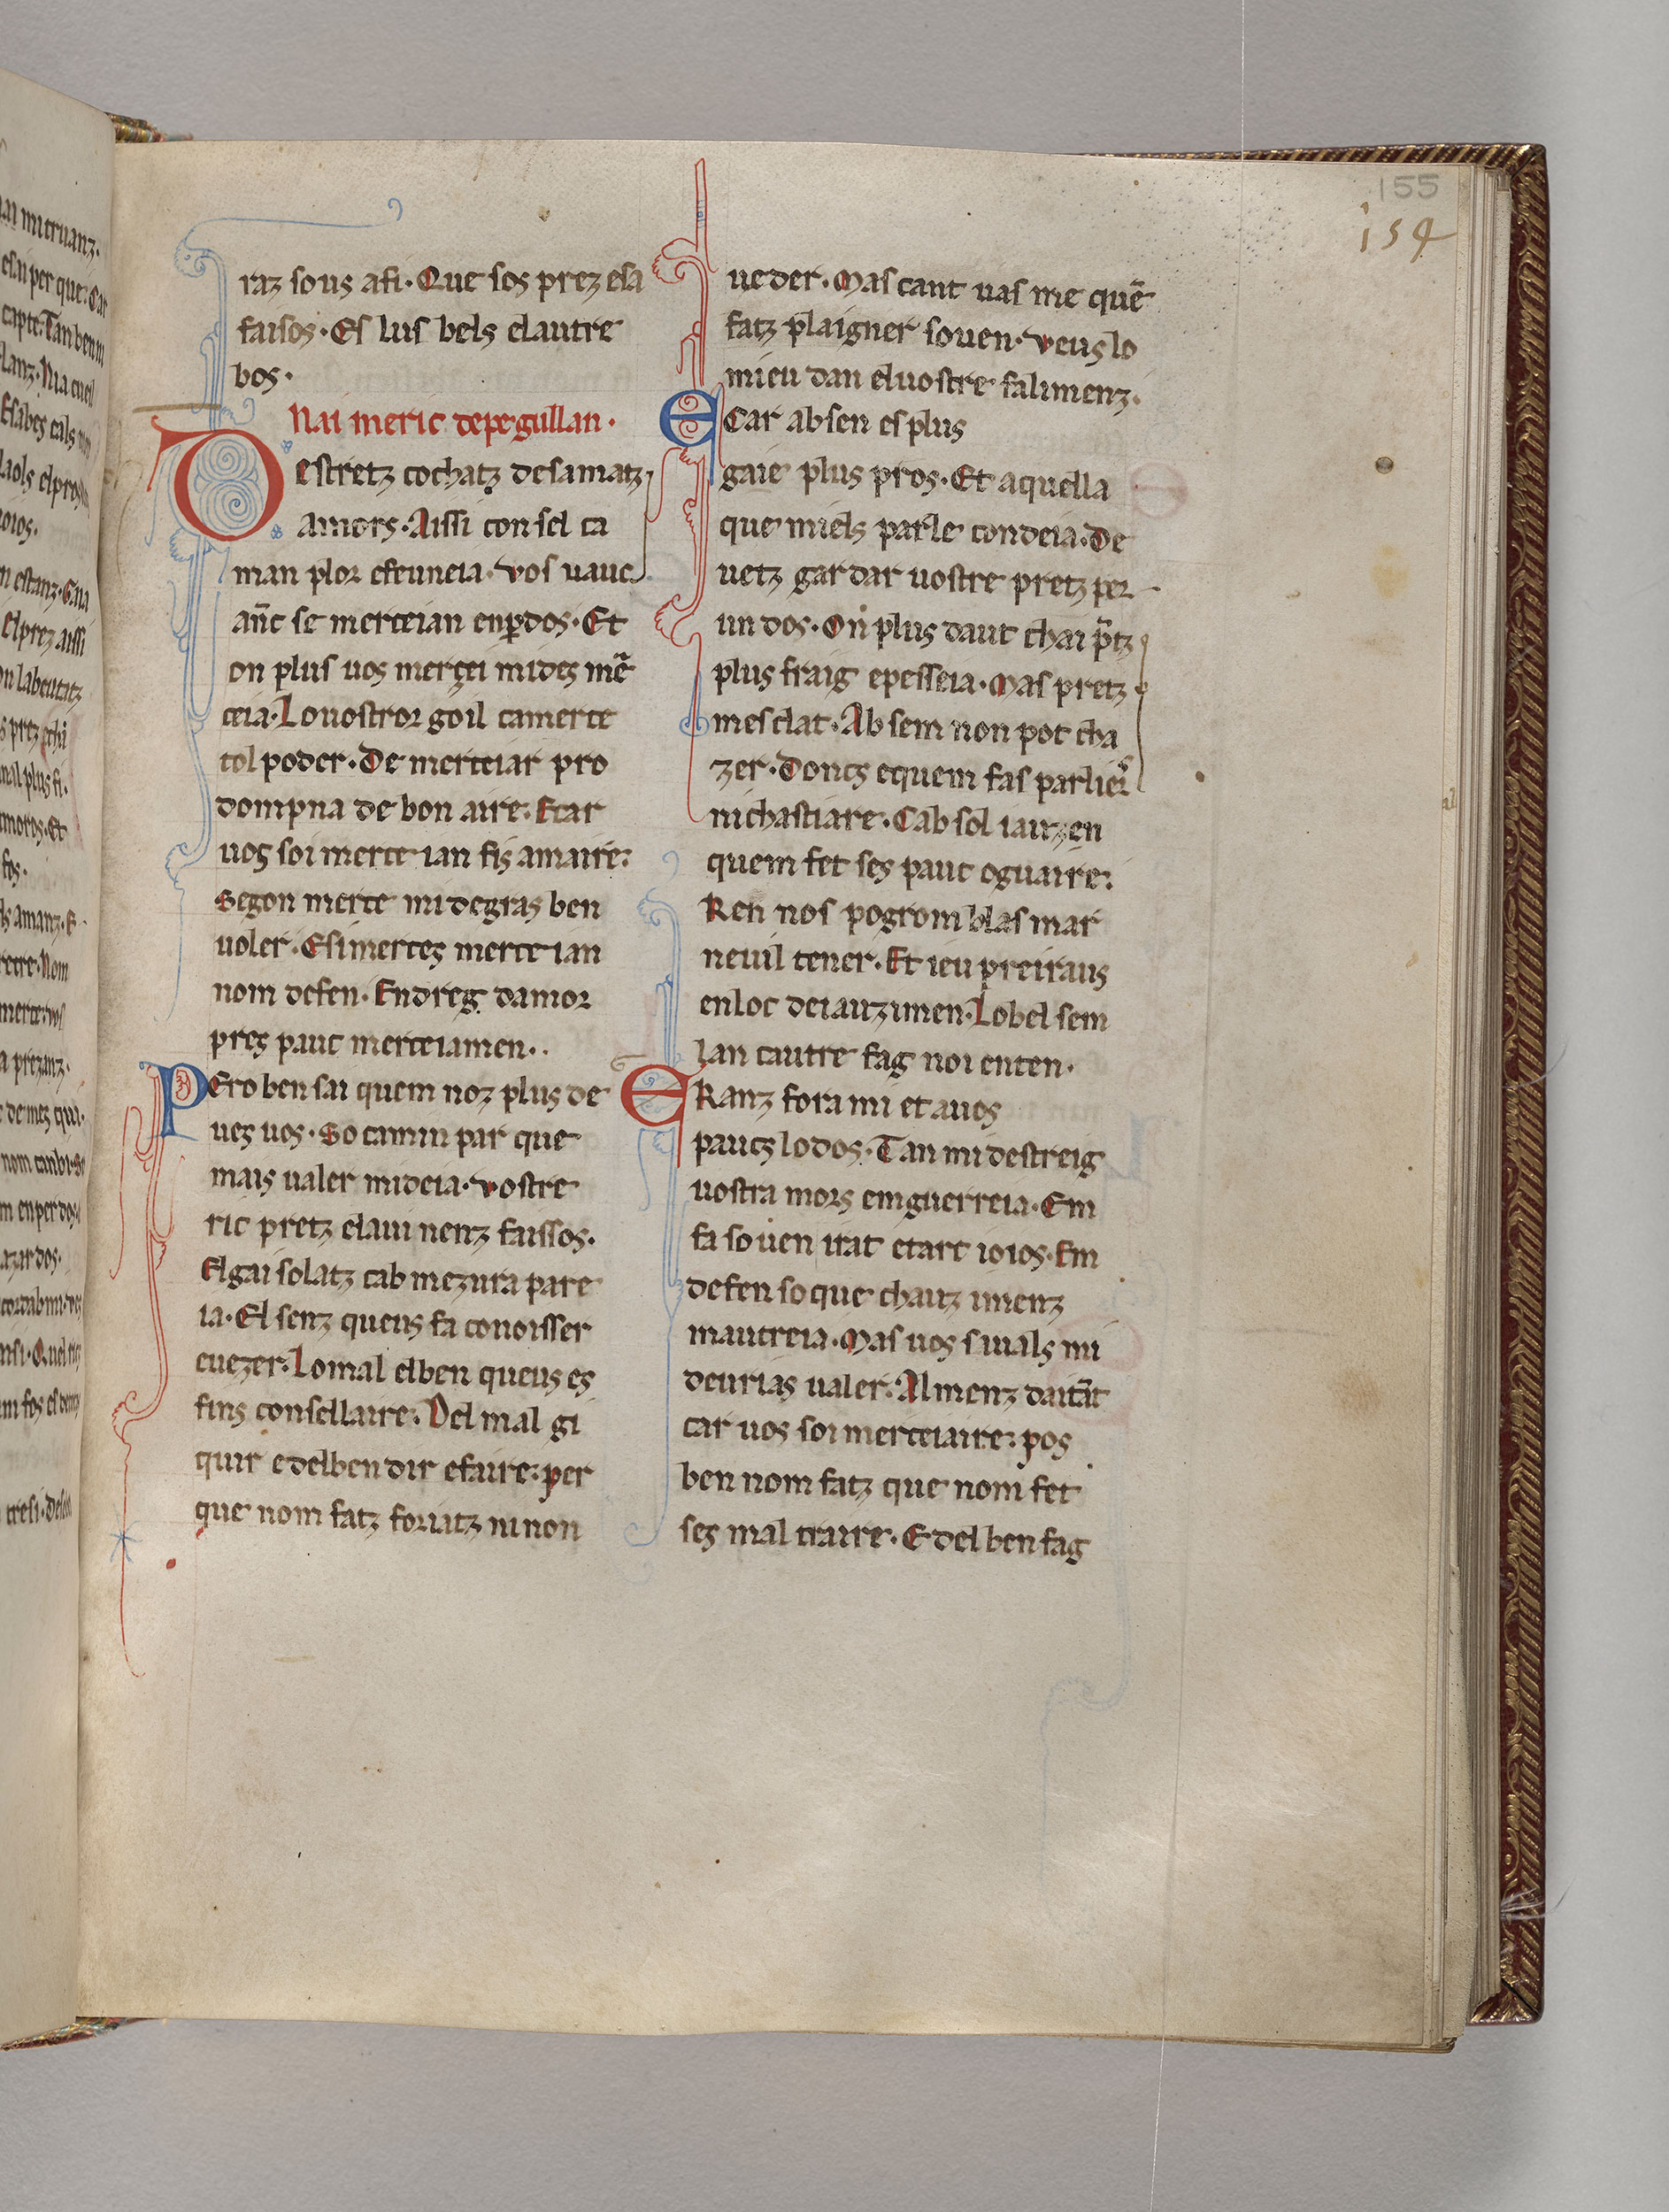 155
154
raz sous afi· Que sos prez esa
faisos· Es lus bels elautre
bos·
Nai meric depegullan·
Destretz cochatz desamatz
amors· Aissi con sel ca
man plor efeuneia· vos uauc
anc̄ se merceian enꝑdos· Et
on plus uos mercei mides mē
ceia· Lo uostror goil camerce
tol poder· De merceiar pro
dompna de bon aire: Ecar
uos soi merce ian fis amaire:
Segon merce mi degras ben
uoler· Esi merces merce ian
nom defen· Endreg damor
pres pauc merceiamen··
Pero ben sai quem noz plus de
ues uos· So camin par que
mais ualer mi deia· vostre
ric pretz elaui nenz faissos·
El gai solatz cab mezura pare
ia· El senz queus fa conoisser
euezer: Lo mal elben queus es
fins consellaire: Del mal gi
quir e delben dir efaire: per
que nom fatz foriatz ni non
ueder· Mas cant uas me quē
fatz plaigner souen· veus lo
mieu dan eluostre falimenz·
E Car absen es plus
gaie plus pros· Et aquella
que miels parle condeia· De
uetz gardar uostre pretz per
un dos· On plus daut chai p̄tz
plus fraig epesseia· Mas pretz
mesclat· Ab sem non pot cha
zer· Doncs equem fas parliers
nichastiare· Cab sol iauzen
quem fet ses pauc oguaire:
Ren nos pogrom blasmar
neuil tener· Et ieu preiraus
enloc deiauzimen· Lobel sem
lan cautre fag noi enten·
E Ranz fora mi et auos
paucs lo dos· Tan mi destreig
uostra mors em guerreia· Em
fa souen irat etart ioios· Em
defen so que chauz imenz
mautreia· Mas uos siuals mi
deurias ualer: Almenz daitāt
car uos soi merceiaire: pos
ben nom fatz que nom fet
ses mal traire· E del ben fag